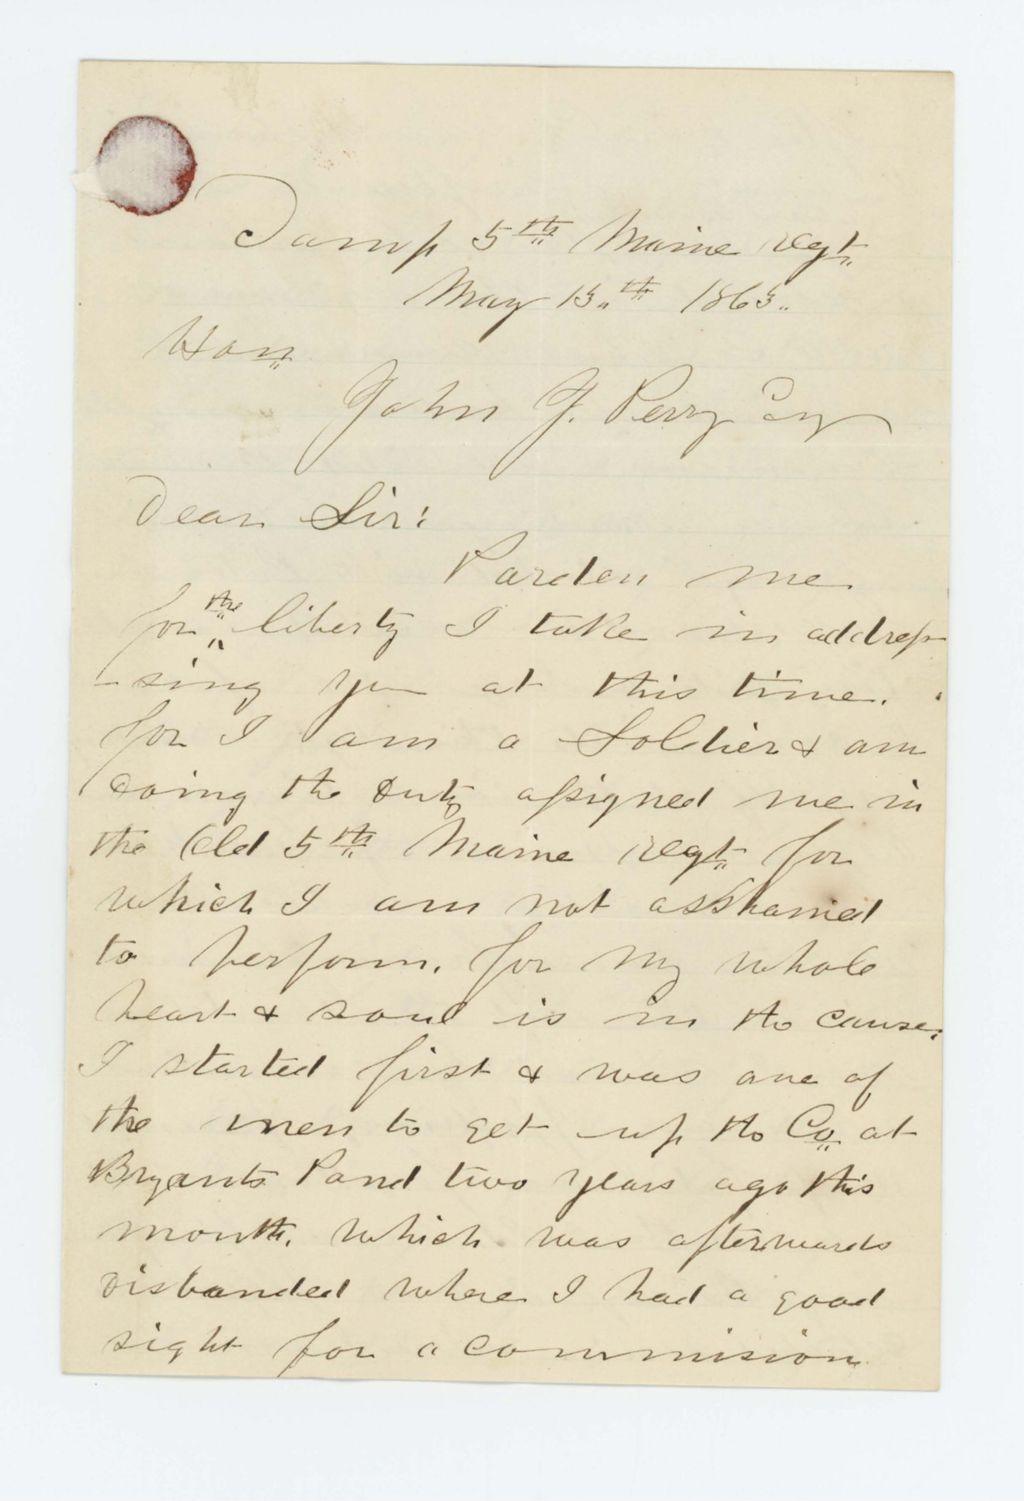 Camp 5th Maine regt.
May 15th 1863.
Hon
John J. Perry Esq
Dear Sir:
Parden me
for the liberty I take in addres-
-sing you at this time.
for I am a Soldier & am
doing the duty assigned me in
the Old 5th Maine regt for
which I am not asshamed
to perform. for my whole
heart & soul is in the cause.
I started first & was one of
the men to get up the Co. at
Bryants Pond two years ago this
month. which was afterwards
disbanded where I had a good
sight for a commision